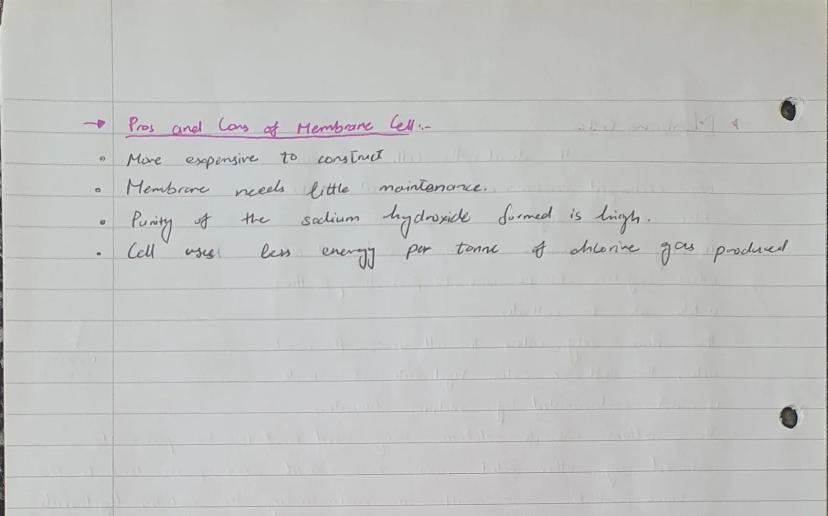 → Pros and Cons of Membrane Cell:-
• More expensive to construct
• Membrane needs little maintenance.
• Purity of the sodium hydroxide formed is high.
• Cell uses less energy per tonne of chlorine gas produced